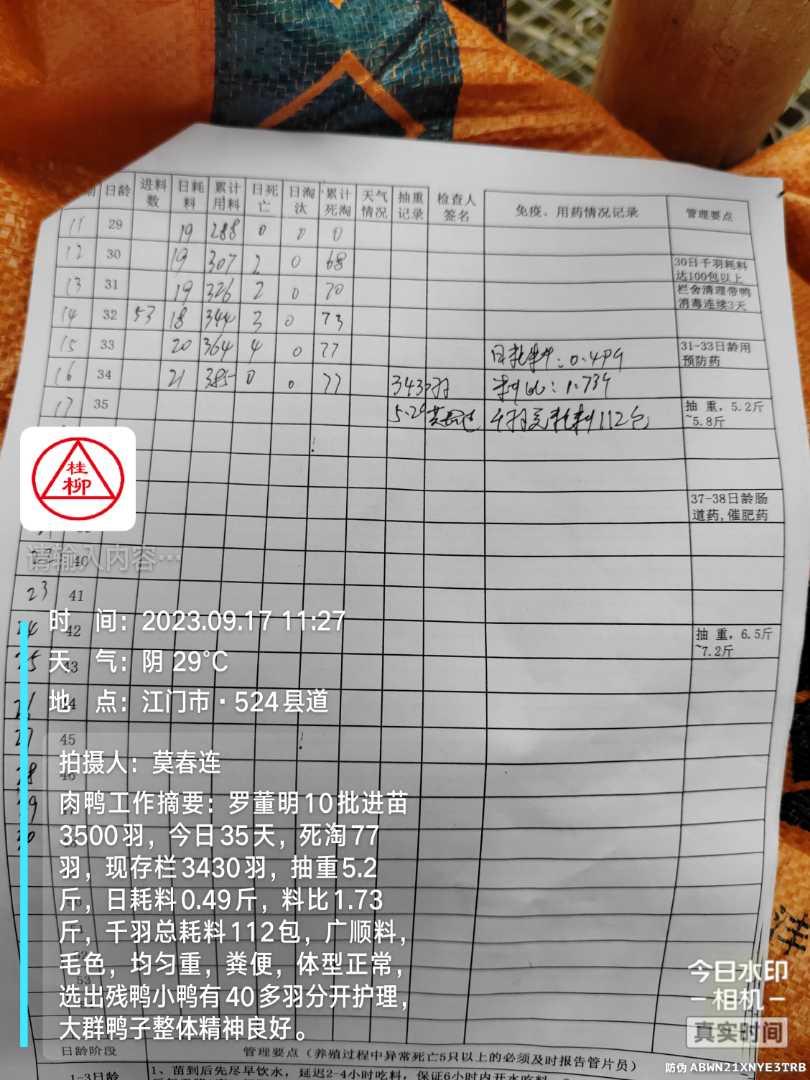 日龄 进料数 日耗料 累计用料 日死亡 日淘汰 累计死淘 天气情况 抽重记录 检查人签名 免疫、用药情况记录 管理要点
11 29 19 288 0 0 0
12 30 19 307 2 0 68 30日千羽耗料达100包以上
13 31 19 326 2 0 70 栏舍清理带鸭消毒连续3天
14 32 53 18 344 3 0 73
15 33 20 364 4 0 77 日耗料:0.49 31-33日龄用预防药
16 34 21 385 0 0 77 3430羽 料比:1.73
17 35 5.2 千羽总耗料112包 抽重,5.2斤~5.8斤
37-38日龄肠道药,催肥药
40
23 41
24 42 抽重,6.5斤~7.2斤
25 43
26 44
27 45
28 46
29
30
桂柳
请输入内容…
时 间:2023.09.17 11:27
天 气:阴 29℃
地 点:江门市·524县道
拍摄人:莫春连
肉鸭工作摘要:罗董明10批进苗
3500羽,今日35天,死淘77
羽,现存栏3430羽,抽重5.2
斤,日耗料0.49斤,料比1.73
斤,千羽总耗料112包,广顺料,
毛色,均匀重,粪便,体型正常,
选出残鸭小鸭有40多羽分开护理,
大群鸭子整体精神良好。
日龄阶段 管理要点(养殖过程中异常死亡5只以上的必须及时报告管片员)
1-3日龄 1、苗到后先尽早饮水,延迟2-4小时吃料,保证6小时内开水吃料
洋
今日水印
相机
真实时间
防伪 ABWN21XNYE3TRB